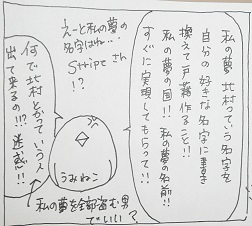 私の夢 北村っていう名字を
自分の好きな名字に書き
換えて戸籍作ること!!
私の夢の国!! 私の夢の名前!!
すぐに実現してもらって!!
えーと私の夢の
名字はね…
Stripeさん
!?
うみねこ
何で北村とかっていう人
出て来るの!!? 迷惑!!
私の夢を全部盗む男
でいい?